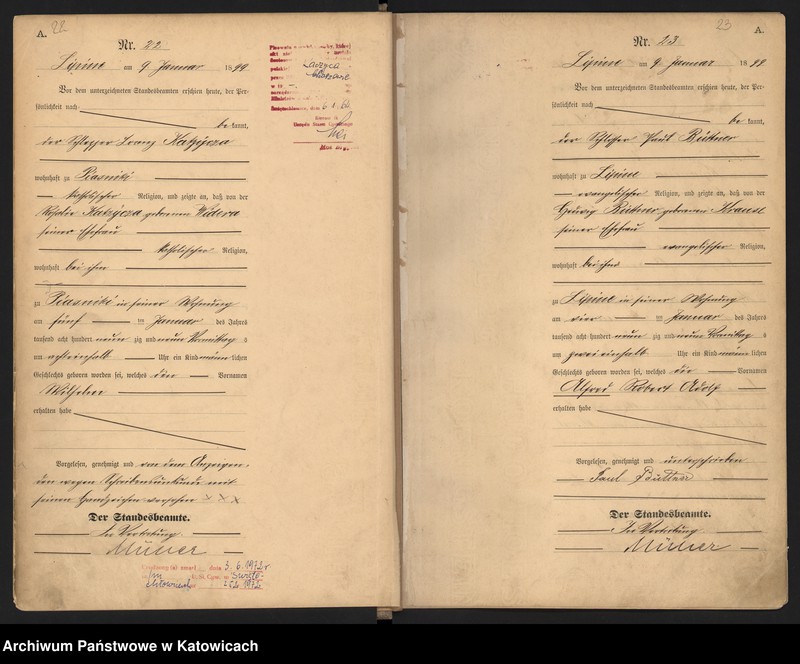 22
A.
Nr. 22
Lipine am 9. Januar 1899
Vor dem unterzeichneten Standesbeamten erschien heute, der Per-
sönlichkeit nach
be kannt,
der Schlepper Franz
wohnhaft zu Piasniki
katholischer Religion, und zeigte an, daß von der
Rosalie geborenen Widera
seiner Ehefrau
katholischer Religion,
wohnhaft bei ihm
zu Piasniki in seiner Wohnung
am fünf ten Januar des Jahres
tausend acht hundert neun zig und neun Vormittag s
um achteinhalb Uhr ein Kind männ lichen
Geschlechts geboren worden sei, welches den Vornamen
Wilhelm
erhalten habe
Vorgelesen, genehmigt und von dem Anzeigen-
den wegen Schreibensunkunde mit
seinem Handzeichen versehen x x x
Der Standesbeamte.
In Vertretung
Müller
3. 6. 1972 r
6. 1. 62
23
A.
Nr. 23
Lipine am 9. Januar 1899
Vor dem unterzeichneten Standesbeamten erschien heute, der Per-
sönlichkeit nach
be kannt,
der Schlosser Paul Büttner
wohnhaft zu Lipine
evangelischer Religion, und zeigte an, daß von der
Hedwig Büttner geborenen Krause
seiner Ehefrau
evangelischer Religion,
wohnhaft bei ihm
zu Lipine in seiner Wohnung
am vier ten Januar des Jahres
tausend acht hundert neun zig und neun Vormittag s
um zweieinhalb Uhr ein Kind männ lichen
Geschlechts geboren worden sei, welches die Vornamen
Alfred Robert Adolf
erhalten habe
Vorgelesen, genehmigt und unterschrieben
Paul Büttner
Der Standesbeamte.
In Vertretung
Müller
Archiwum Państwowe w Katowicach